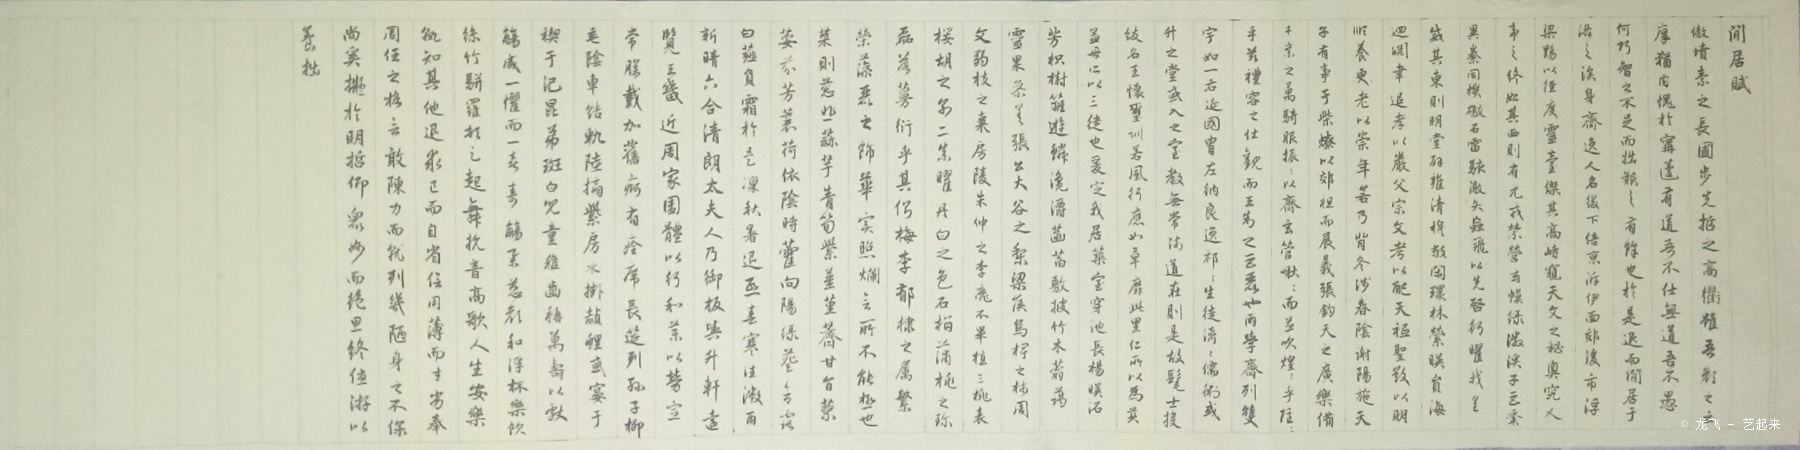 閒居賦
傲墳素之長圃步先哲之高衢雖吾顏之云
厚猶內愧於寧蘧有道吾不仕無道吾不愚
何巧智之不足而拙艱之有餘也於是退而閒居于
洛之涘身齊逸人名綴下士倍京泝伊面郊後市浮
梁黝以徑度靈臺傑其高峙窺天文之秘奧究人
事之終始其西則有元戎禁營玄幙綠徽谿子巨黍
異絭同機礮石雷駭激矢蝱飛以先啓行曜我皇
威其東則明堂辟雍清穆敞閑環林縈映員海
迴淵聿追孝以嚴父宗文考以配天祗聖敬以明
順養更老以崇年若乃背冬涉春陰謝陽施天
子有事于柴燎以郊祖而展義張鈞天之廣樂備
千乘之萬騎服振振以齊玄管啾啾而並吹煌煌乎隱隱
乎茲禮容之壯觀而王制之巨麗也兩學齊列雙
宇如一右延國胄左納良逸祁祁生徒濟濟儒術或
升之堂或入之室教無常師道在則是故髦士投
紱名王懷璽訓若風行應如草靡此里仁所以為美
孟母所以三徙也爰定我居築室穿池長楊映沼
芳枳樹籬遊鱗瀺灂菡萏敷披竹木蓊藹
靈果參差張公大谷之梨梁侯烏椑之柿周
文弱枝之棗房陵朱仲之李靡不畢植三桃表
櫻胡之別二柰曜丹白之色石榴蒲桃之珍
磊落蔓衍乎其側梅李郁棣之屬繁
榮藻麗之飾華實照爛言所不能極也
菜則蔥韭蒜芋青筍紫薑堇薺甘旨蓼
荽芬芳蘘荷依陰時藿向陽綠葵含露
白薤負霜於是凜秋暑退熙春寒往微雨
新晴六合清朗太夫人乃御板輿升輕軒遠
覽王畿近周家園體以行和藥以勞宣
常膳載加舊痾有痊席長筵列孫子柳
垂陰車結軌陸摘紫房水掛赬鯉或宴于林
禊于汜昆弟班白兒童稚齒稱萬壽以獻
觴咸一懼而一喜壽觴舉慈顏和浮杯樂飲
絲竹駢羅頓足起舞抗音高歌人生安樂
孰知其他退求己而自省信用薄而才劣奉
周任之格言敢陳力而就列幾陋身之不保
尚奚擬於明哲仰衆妙而絕思終優游以
養拙
© 龙飞 — 艺起来